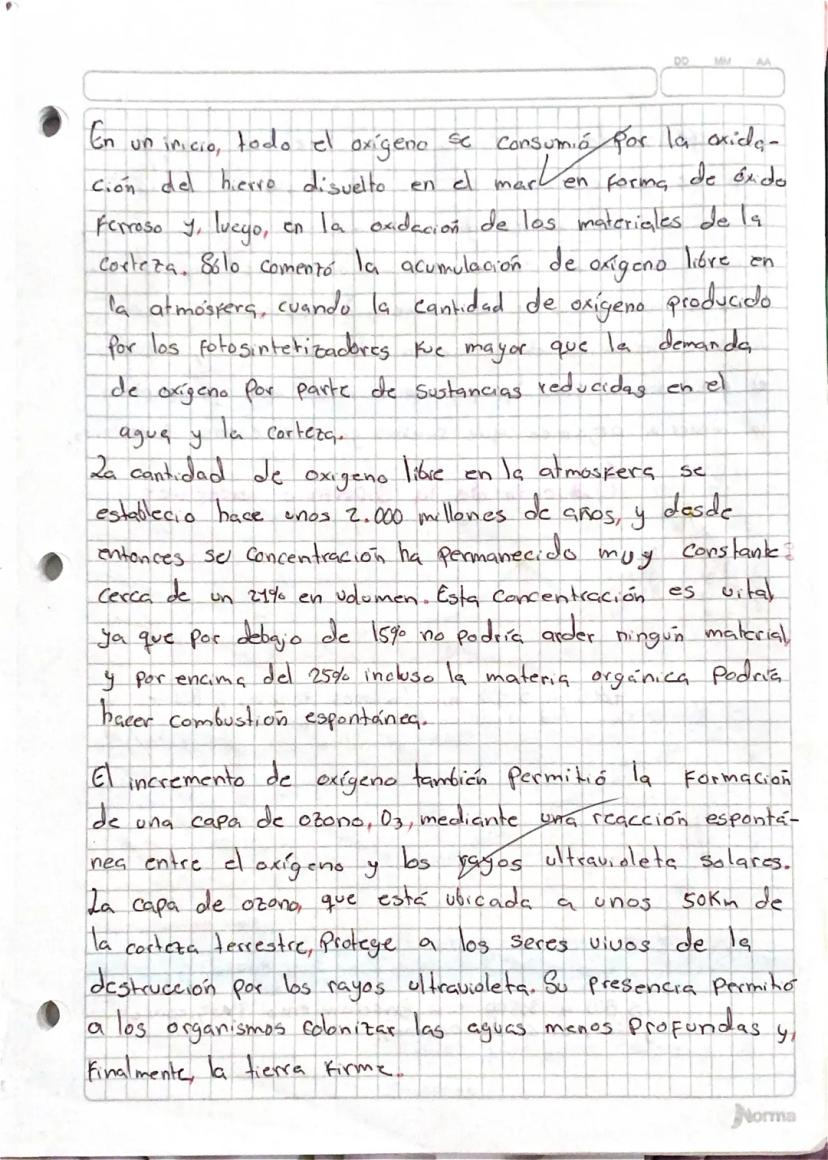 DD MM AA
En un inicio, todo el oxígeno se consumió por la oxida-
ción del hierro disuelto en el mar en forma de óxido
Ferroso y, luego, en la oxidación de los materiales de la
corteza. Sólo comenzó la acumulación de oxígeno libre en
la atmósfera, cuando la cantidad de oxígeno producido
por los fotosintetizadores fue mayor que la demanda
de oxígeno por parte de sustancias reducidas en el
agua y la corteza.
La cantidad de oxigeno libre en la atmosfera se
establecio hace unos 2.000 millones de años, y desde
entonces su concentración ha permanecido muy constante:
cerca de un 21% en volumen. Esta concentración es vital
ya que por debajo de 15% no podría arder ningún material
y por encima del 25% incluso la materia orgánica podría
hacer combustión espontánea.
El incremento de oxígeno también permitió la Formación
de una capa de ozono, O3, mediante una reacción espontá-
nea entre el oxígeno y los rayos ultravioleta solares.
La capa de ozono, que está ubicada a unos 50Km de
la corteza terrestre, Protege a los seres vivos de la
destrucción por los rayos ultravioleta. Su presencia permitió
a los organismos colonizar las aguas menos profundas y,
Finalmente, la tierra firme.
Norma